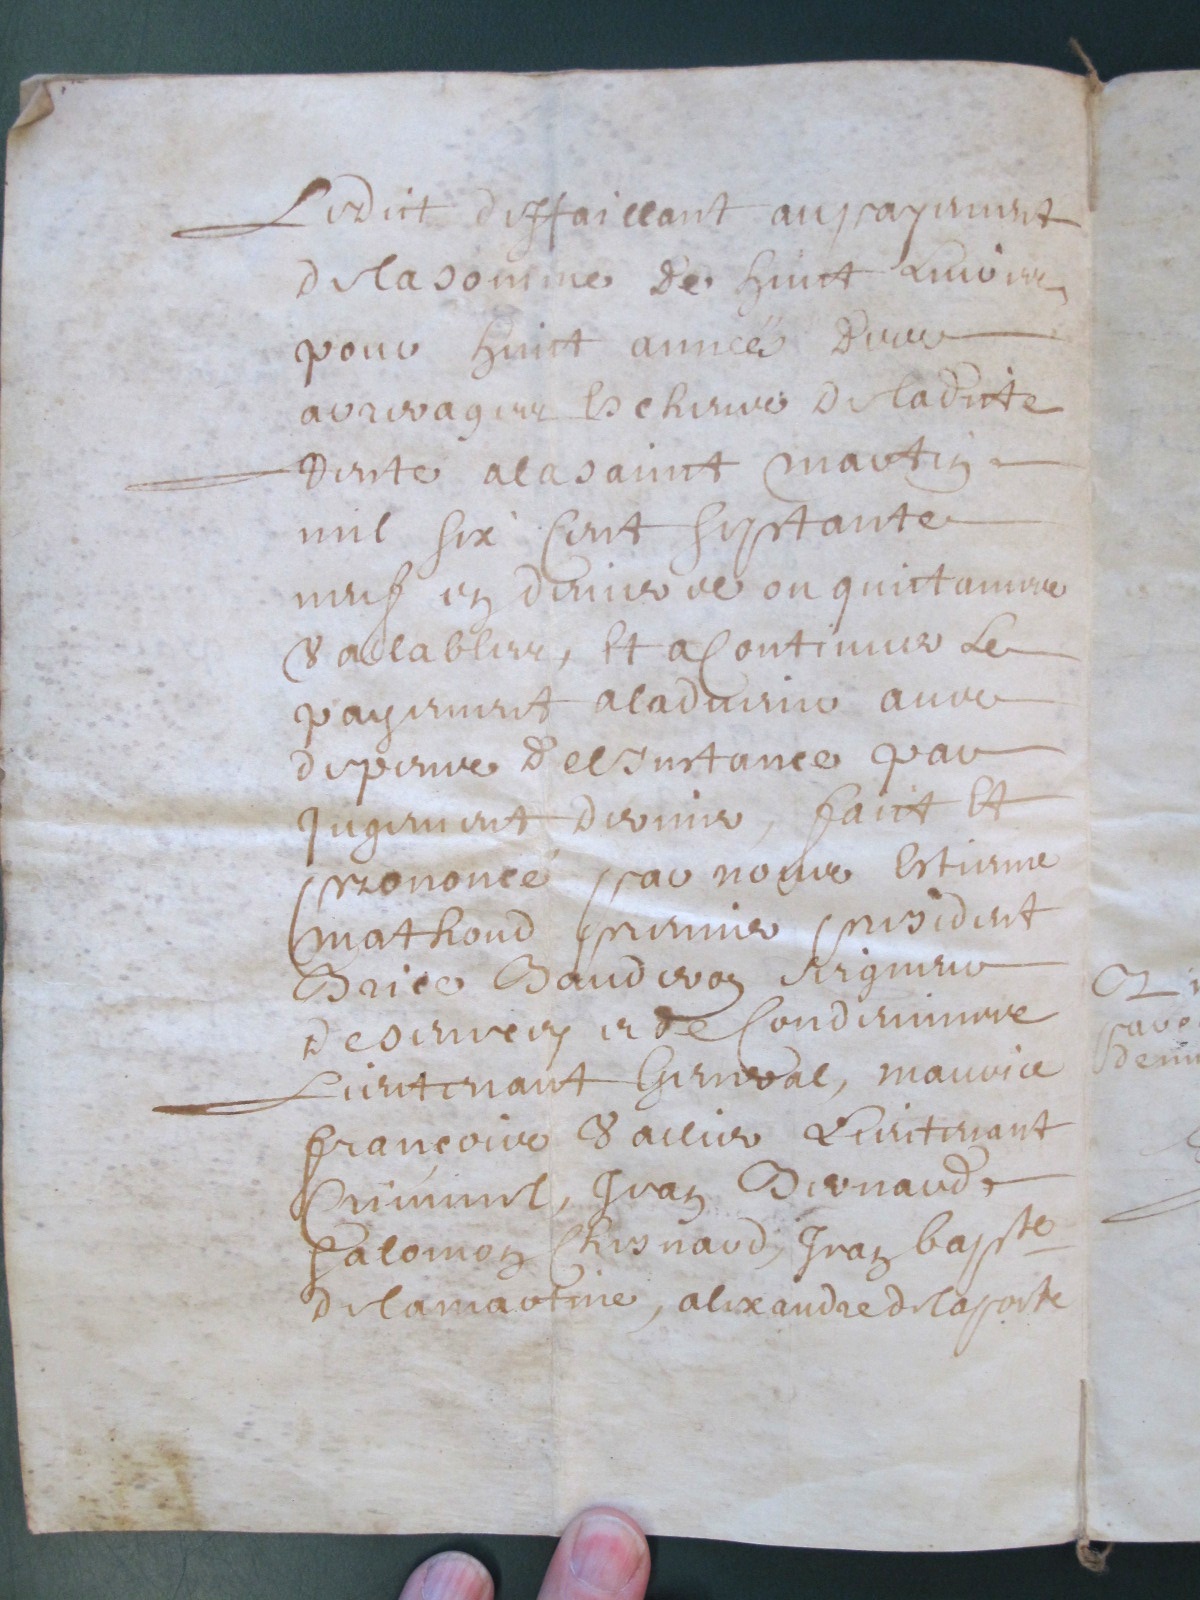 Ledict deffaillant au payement
de la somme de huict Livres
pour huict années des
arrerages Escheues de ladicte
Rente a la saint martin
mil six Cent septante
neuf en deniers ou quictances
Vallables, Et a Continuer Le
payement a ladvenir avec
despens de l'Instance par
Jugement dernier, faict Et
prononcé par nous Estienne
mathoud premier president
Brice Bauderon seigneur
de senecey et de Condemines
Lieutenant General, maurice
françois Vallier Lieutenant
Criminel, Jean Bernard,
Salomon Chesnard, Jean bapste
de lamartine, alexandre de laporte